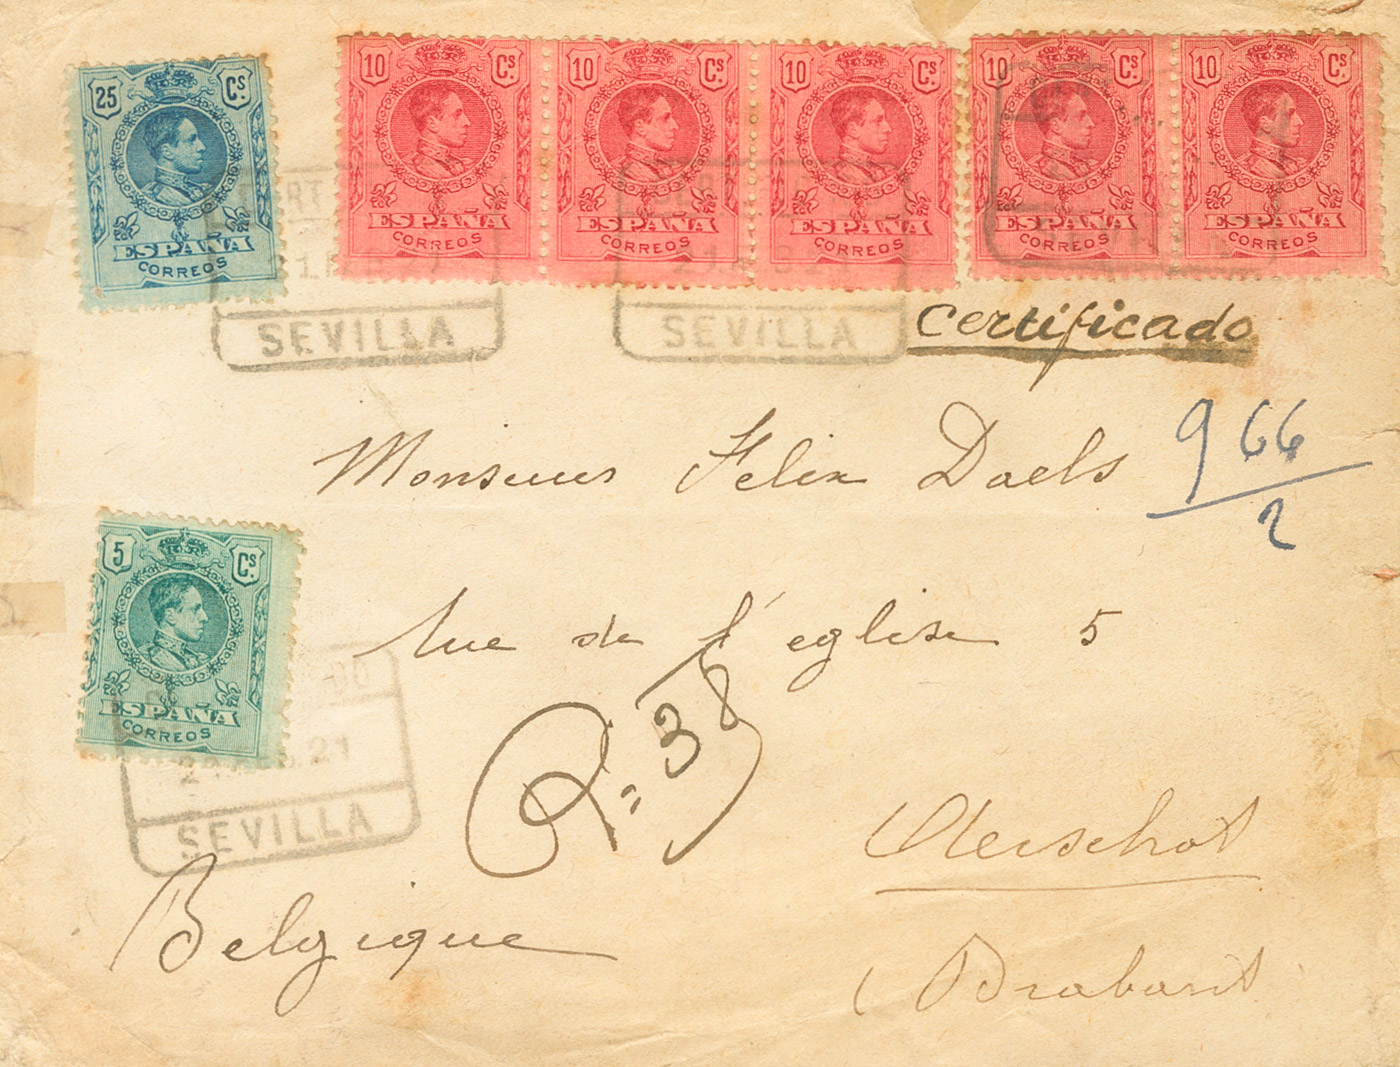 25 Cs.
ESPAÑA
CORREOS
10 Cs.
ESPAÑA
CORREOS
10 Cs.
ESPAÑA
CORREOS
10 Cs.
ESPAÑA
CORREOS
10 Cs.
ESPAÑA
CORREOS
10 Cs.
ESPAÑA
CORREOS
SEVILLA
SEVILLA
Certificado
Monsieur Felix Daels
966
2
5 Cs.
ESPAÑA
CORREOS
rue de l'eglise 5
R = 38
21
SEVILLA
Aerschot
Belgique
Brabant